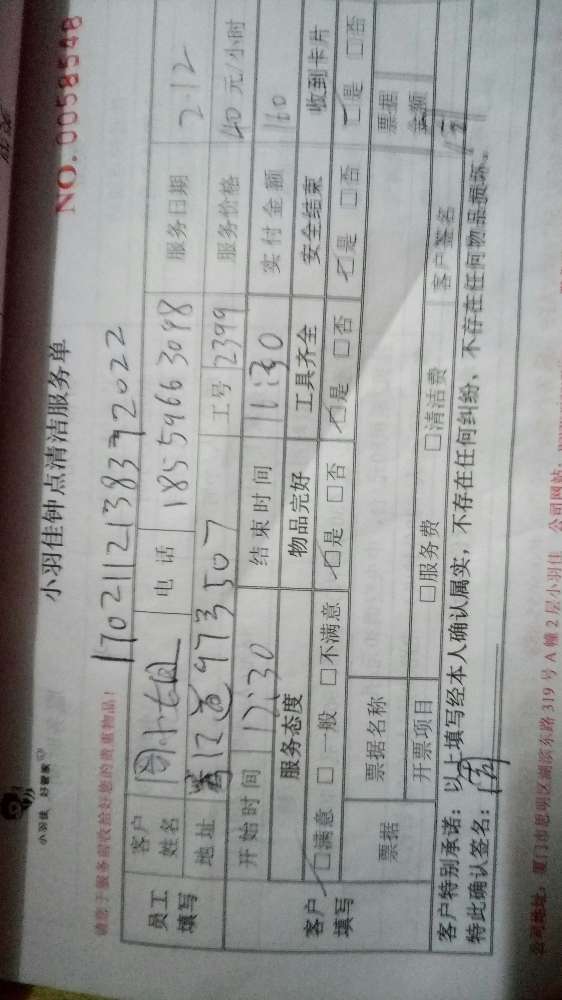 小羽佳 好管家
小羽佳钟点清洁服务单
NO.0058548
请您于服务前收拾好您的贵重物品！
17021121383792022
员工填写
客户姓名 周小姐 电话 18559663098 服务日期 2.12
地址 道973 507 工号 2399 服务价格 40元/小时
开始时间 12:30 结束时间 实付金额 160
客户填写
服务态度 物品完好 工具齐全 安全结束 收到卡片
□满意 □一般 □不满意 □是 □否 □是 □否 □是 □否 □是 □否
票据 票据名称 票据金额
开票项目 □服务费 □清洁费 客户签名
客户特别承诺：以上填写经本人确认属实，不存在任何纠纷，不存在任何物品损坏。
特此确认签名：周
公司地址：厦门市思明区湖滨东路319号A幢2层小羽佳 公司网站：